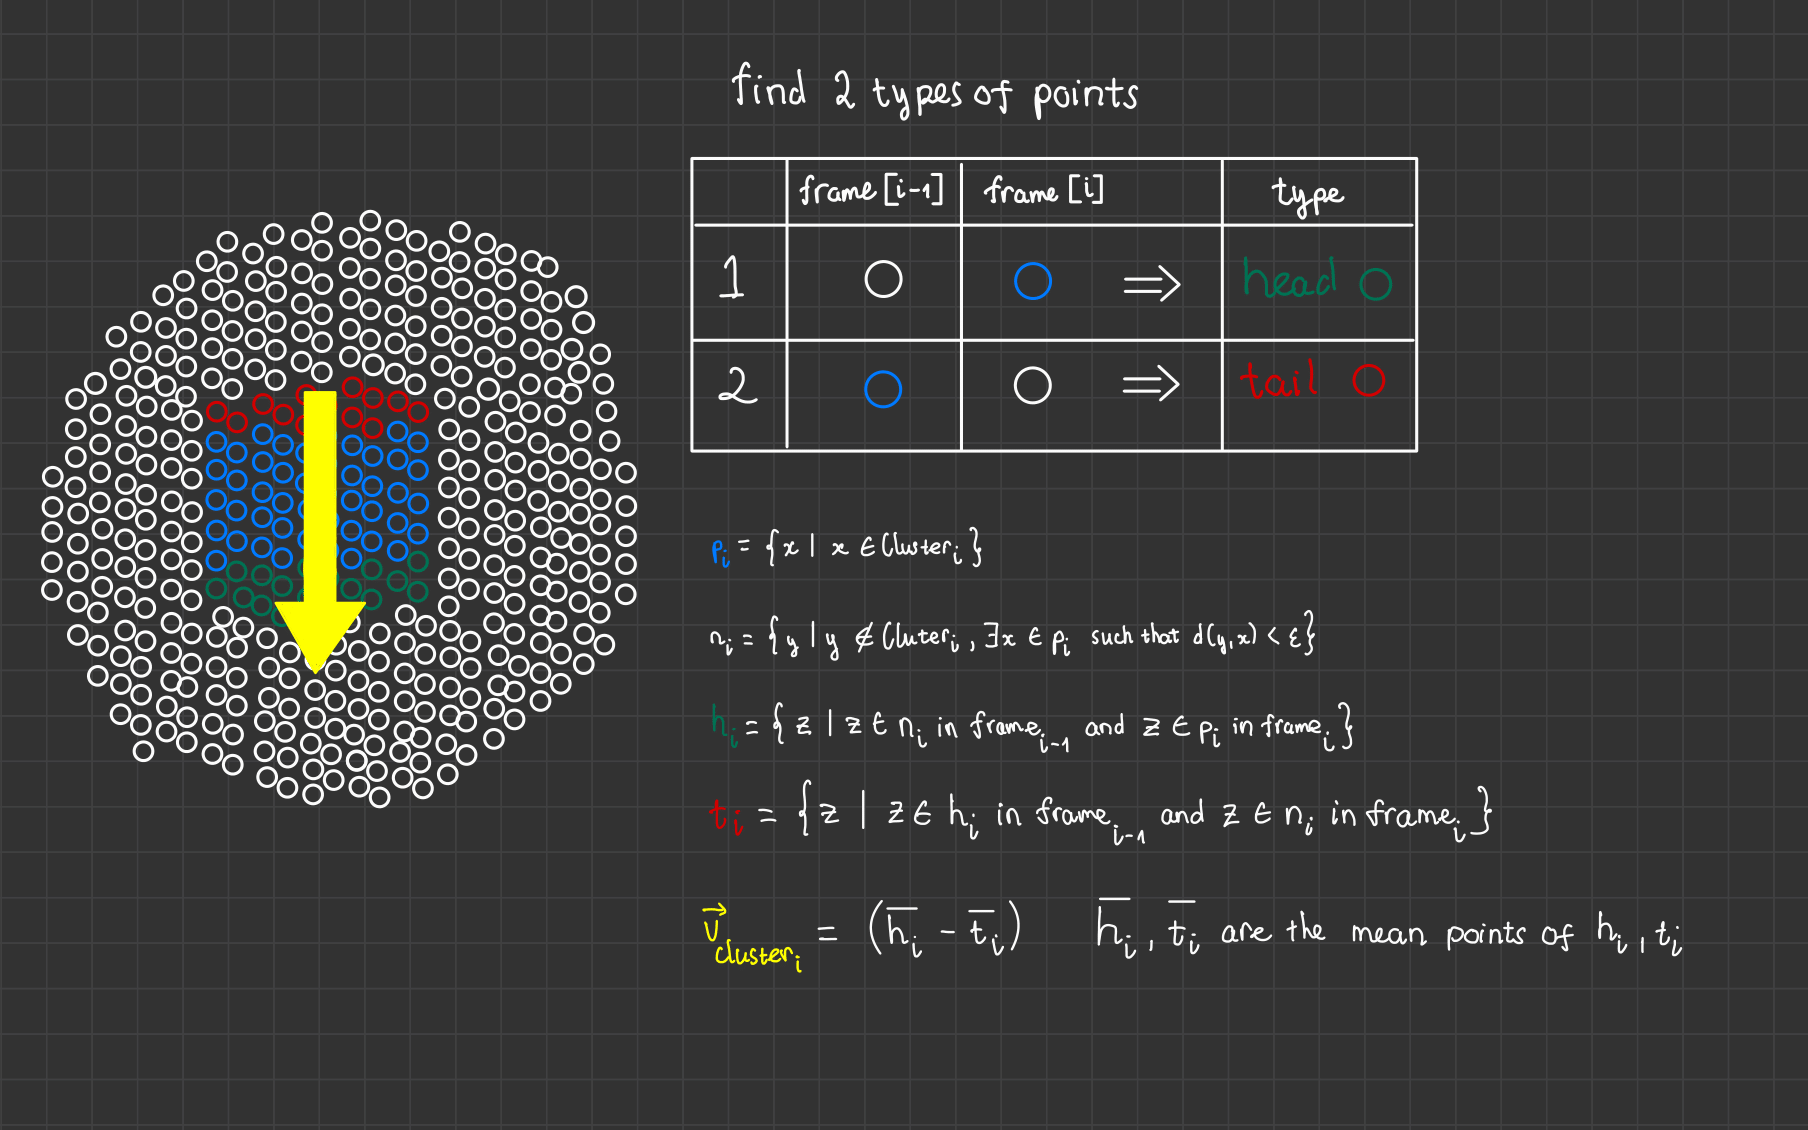 find 2 types of points
frame[i-1] frame[i] type
1 ⇒ head
2 ⇒ tail
p_i = {x | x ∈ Cluster_i}
n_i = {y | y ∉ Cluter_i, ∃x ∈ p_i such that d(y,x) < ε}
h_i = {z | z ∈ n_i in frame_{i-1} and z ∈ p_i in frame_i}
t_i = {z | z ∈ h_i in frame_{i-1} and z ∈ n_i in frame_i}
v⃗_{cluster_i} = (h̅_i - t̅_i) h̅_i, t̅_i are the mean points of h_i, t_i